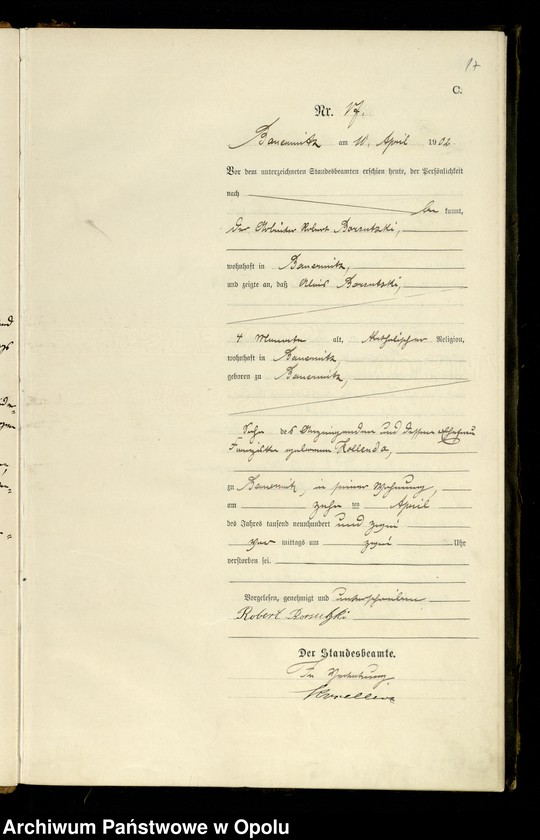 17
C.
Nr. 17.
Bauerwitz am 10. April 1902
Vor dem unterzeichneten Standesbeamten erschien heute, der Persönlichkeit
nach
be kannt,
der Arbeiter Robert Borsutzki,
wohnhaft in Bauerwitz,
und zeigte an, daß Alois Borsutzki,
4 Monate alt, katholischer Religion,
wohnhaft in Bauerwitz,
geboren zu Bauerwitz,
Sohn des Anzeigenden und dessen Ehefrau
Franziska geborenen Kollenda,
zu Bauerwitz, in seiner Wohnung,
am zehn ten April
des Jahres tausend neunhundert und zwei
vor mittags um zwei Uhr
verstorben sei.
Vorgelesen, genehmigt und unterschrieben
Robert Borsutzki
Der Standesbeamte.
In Vertretung
Archiwum Państwowe w Opolu